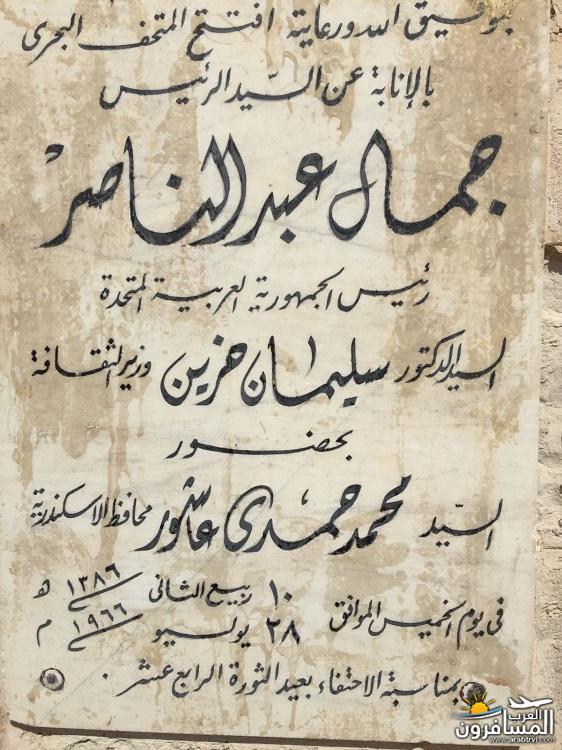 بتوفيق الله ورعايته افتتح المتحف البحرى
بالإنابة عن السيّد الرئيس
جمال عبد الناصر
رئيس الجمهورية العربية المتحدة
السيد الدكتور سليمان حزين وزير الثقافة
بحضور
السيّد محمد حمدى عاشور محافظ الاسكندرية
فى يوم الخميس الموافق ١٠ ربيع الثانى ١٣٨٦ ه
٢٨ يوليو ١٩٦٦ م
بمناسبة الاحتفاء بعيد الثورة الرابع عشر .
العرب
المسافرون
www.arabtrvl.com